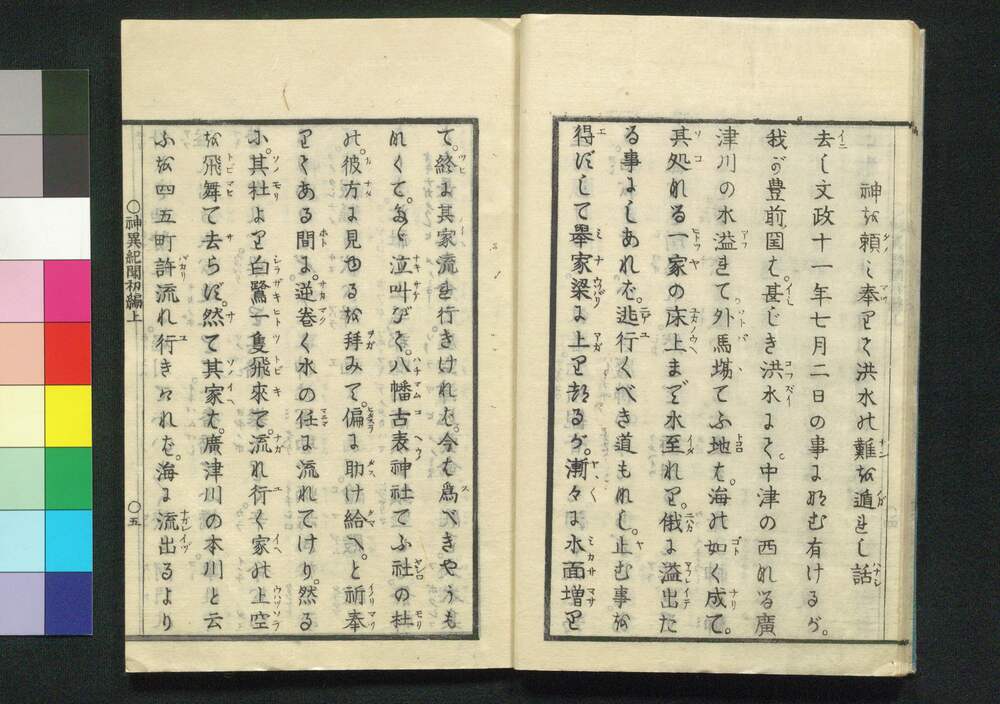 神を頼み奉りて洪水の難を遁れし話
去し文政十一年七月二日の事になむ有けるが。
我が豊前国は。甚じき洪水にて中津の西なる廣
津川の水溢れて外馬場てふ地は。海の如く成て。
其処なる一家の床上まで水至れり。俄に溢出た
る事にしあれば。迯行くべき道もなし。止む事を
得ずして挙家梁に上り居るが。漸々に水面増り
て。終に其家流れ行きければ。今は為べきやうも
なくて。各泣叫びて。八幡古表神社てふ社の杜
の。彼方に見ゆるを拝みて。偏に助け給へ。と祈奉
りてある間に。逆巻く水の任に流れてけり。然る
に。其杜より白鷺一隻飛来て。流れ行く家の上空
を飛舞て去らず。然て其家は。廣津川の本川と云
ふを四五町許流れ行きければ。海に流出るより
○神異紀聞初編上
○五